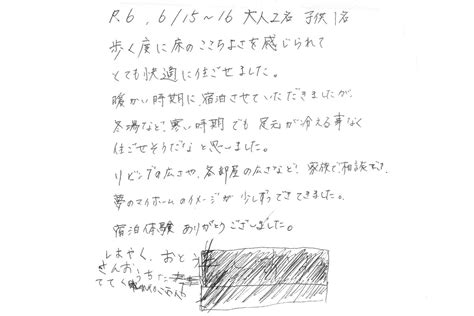 R.6, 6/15～16 大人2名 子供1名
歩く度に床のここちよさを感じられて
とても快適に住ごせました。
暖かい時期に宿泊させていただきましたが、
冬場など、寒い時期でも足元が冷える事なく
住ごせそうだなと思いました。
リビングの広さや、各部屋の広さなど、家族で相談でき、
夢のマイホームのイメージが少しずつできてきました。
宿泊体験ありがとうございました。
しはやく、おとう
さんおうちた
ててく